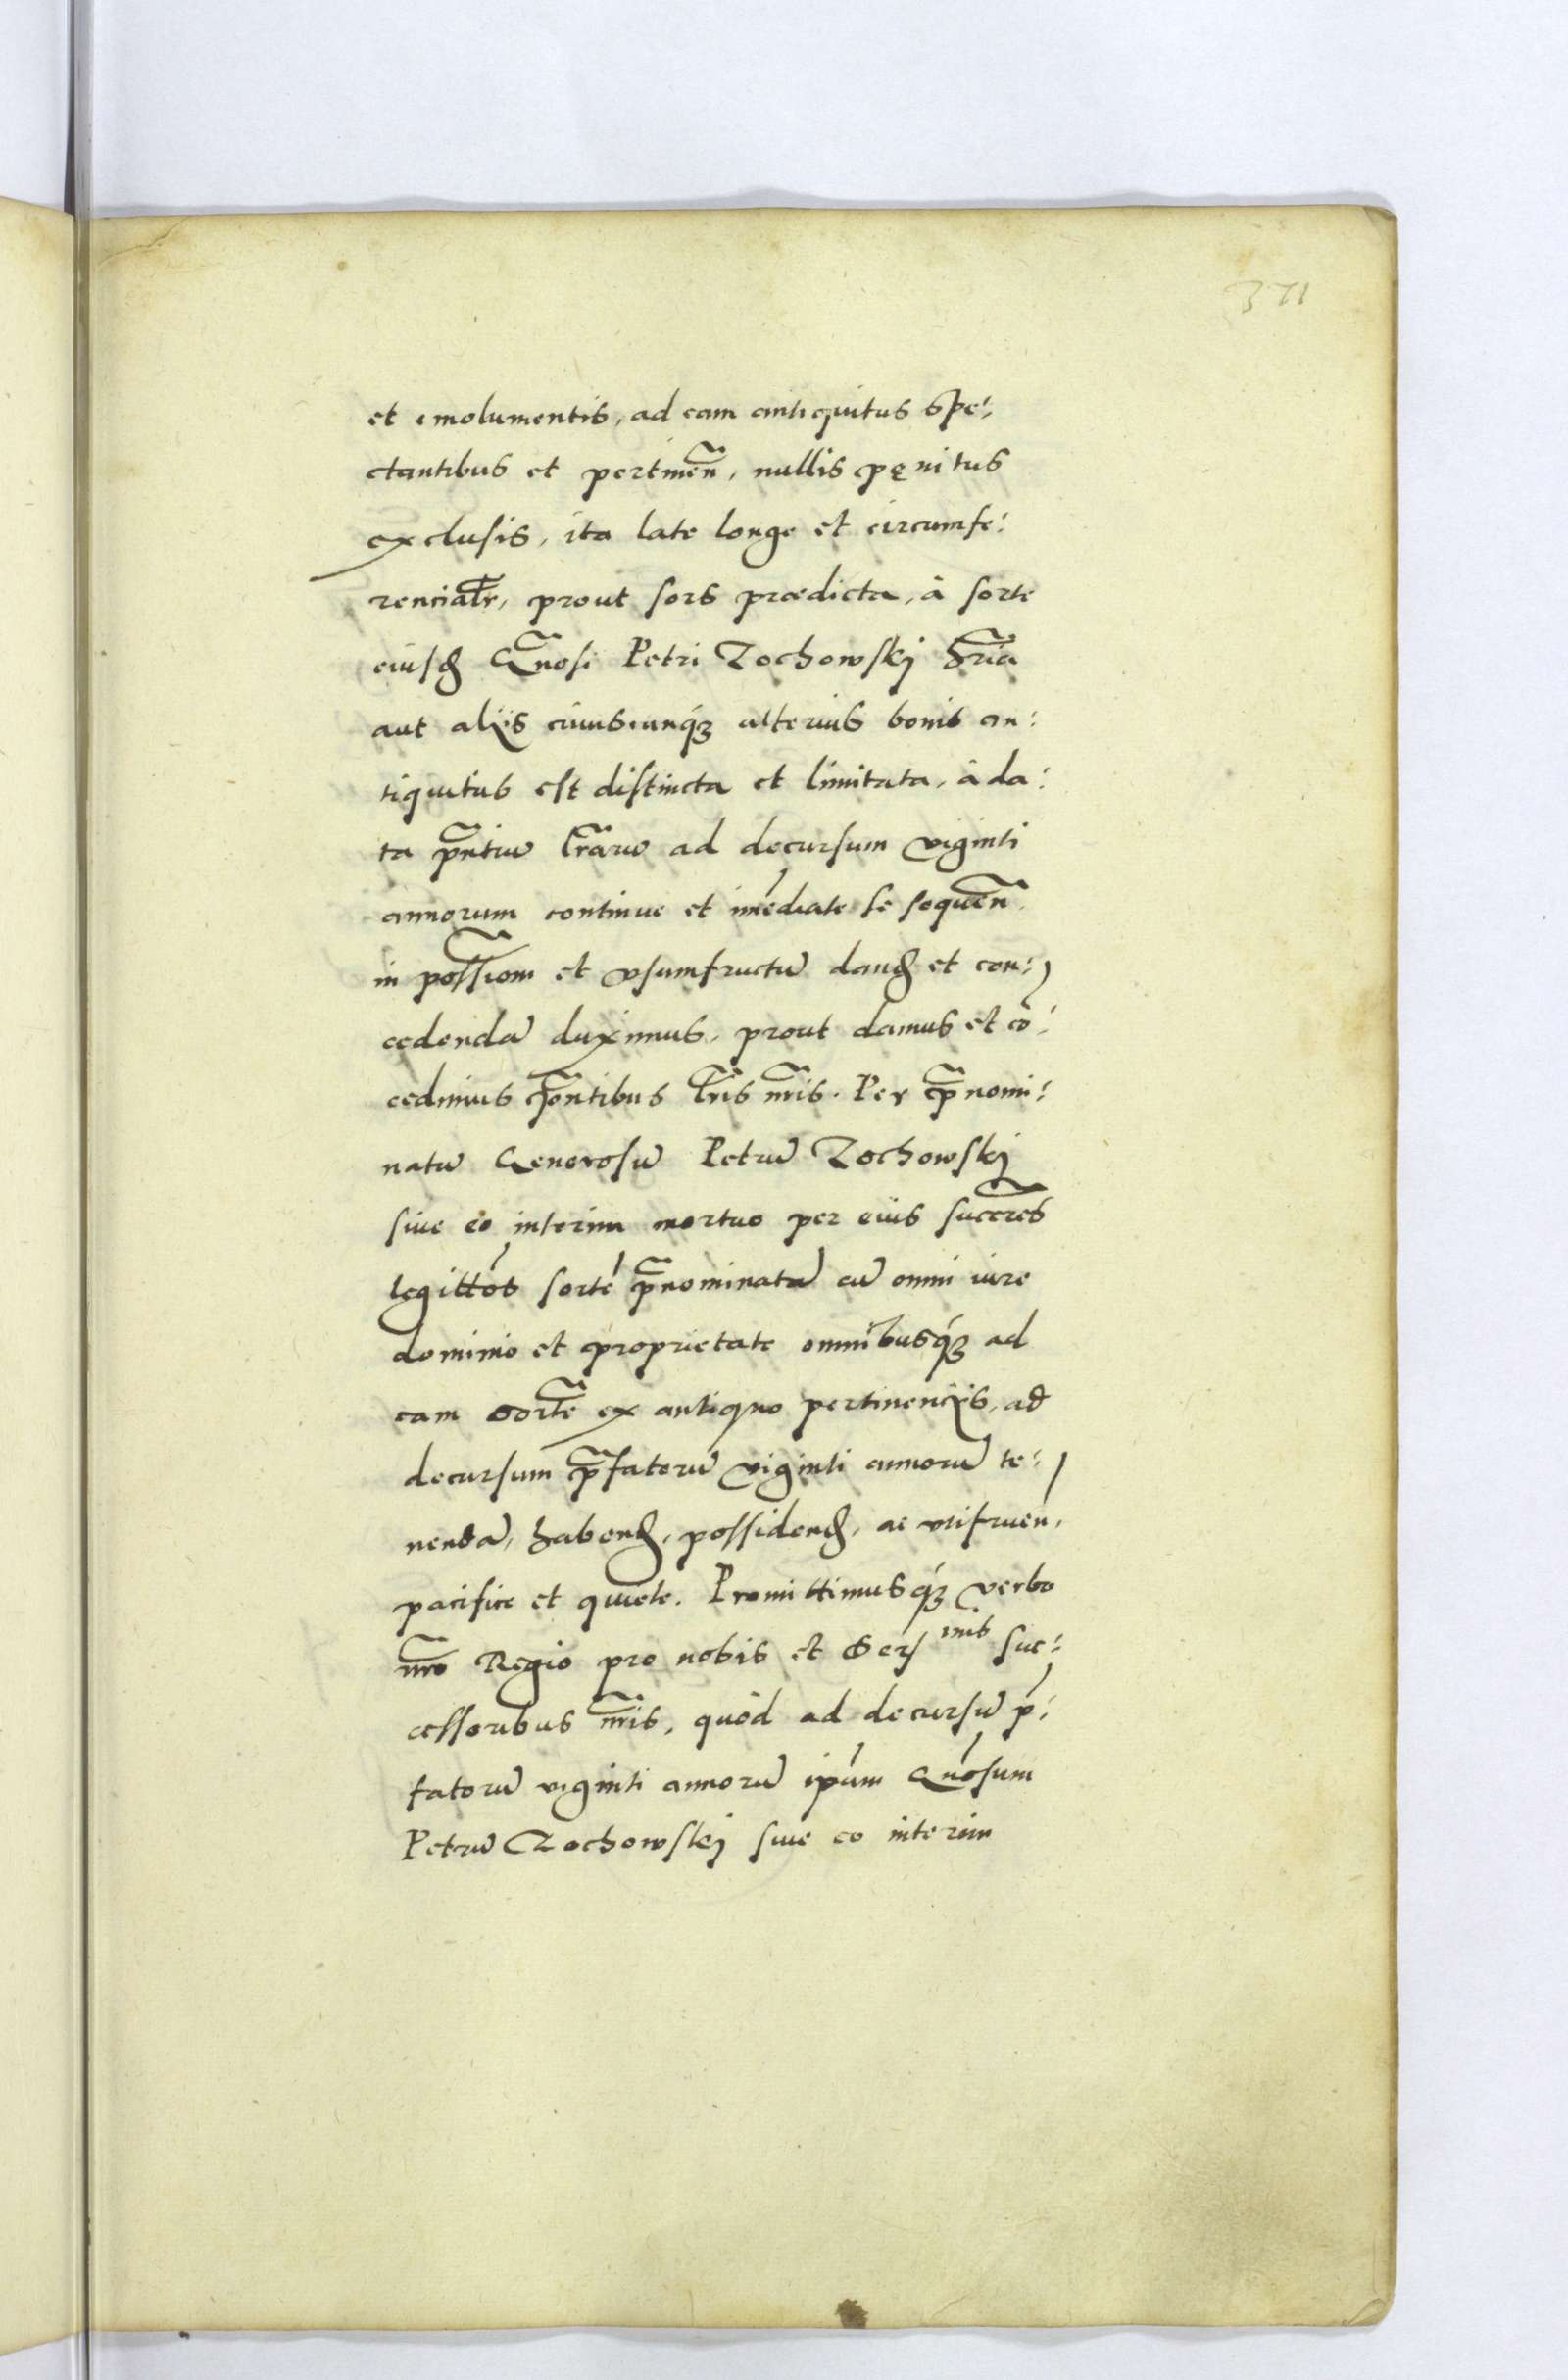 371
et emolumentis, ad eam antiquitus spe:
ctantibus et pertineñ, nullis pęnitus
exclusis, ita late longe et circumfe:
rencialr̃, prout sors prædicta, à sorte
eiusd Gñosi Petri Zochowskj hr̃ia
aut alÿs cuiuscunq́ꝫ alterius bonis an:
tiquitus est distincta et limitata, à da:
ta p̃ntiũ lr̃arũ ad decursum viginti
annorum continue et im̃ediate se sequeñ.
in poss̃iom et vsumfructũ dand et con:
cedendã duximus, prout damus et cõ:
cedimus p̃ntibus lr̃is nr̃is. Per p̃nomi:
natũ Generosũ Petrũ Zochowskj
siue eo interim mortuo per eius succr̃es
legitt̃os sortẽ p̃nominatã cũ omni iure
dominio et proprietate omnibusq́ꝫ ad
eam sort̃e ex antiquo pertinencÿs, ad
decursum p̃fatorũ viginti annorũ te:
nendã, habend, possidend, ac vtifruen,
pacifice et quiete. Promittimusq́ꝫ verbo
nr̃o Regio pro nobis et Ser inis suc:
cessoribus nr̃is, quòd ad decursũ p̃:
fatorũ viginti annorũ ip̃um Gñosum
Petrũ Zochowskj siue eo interim